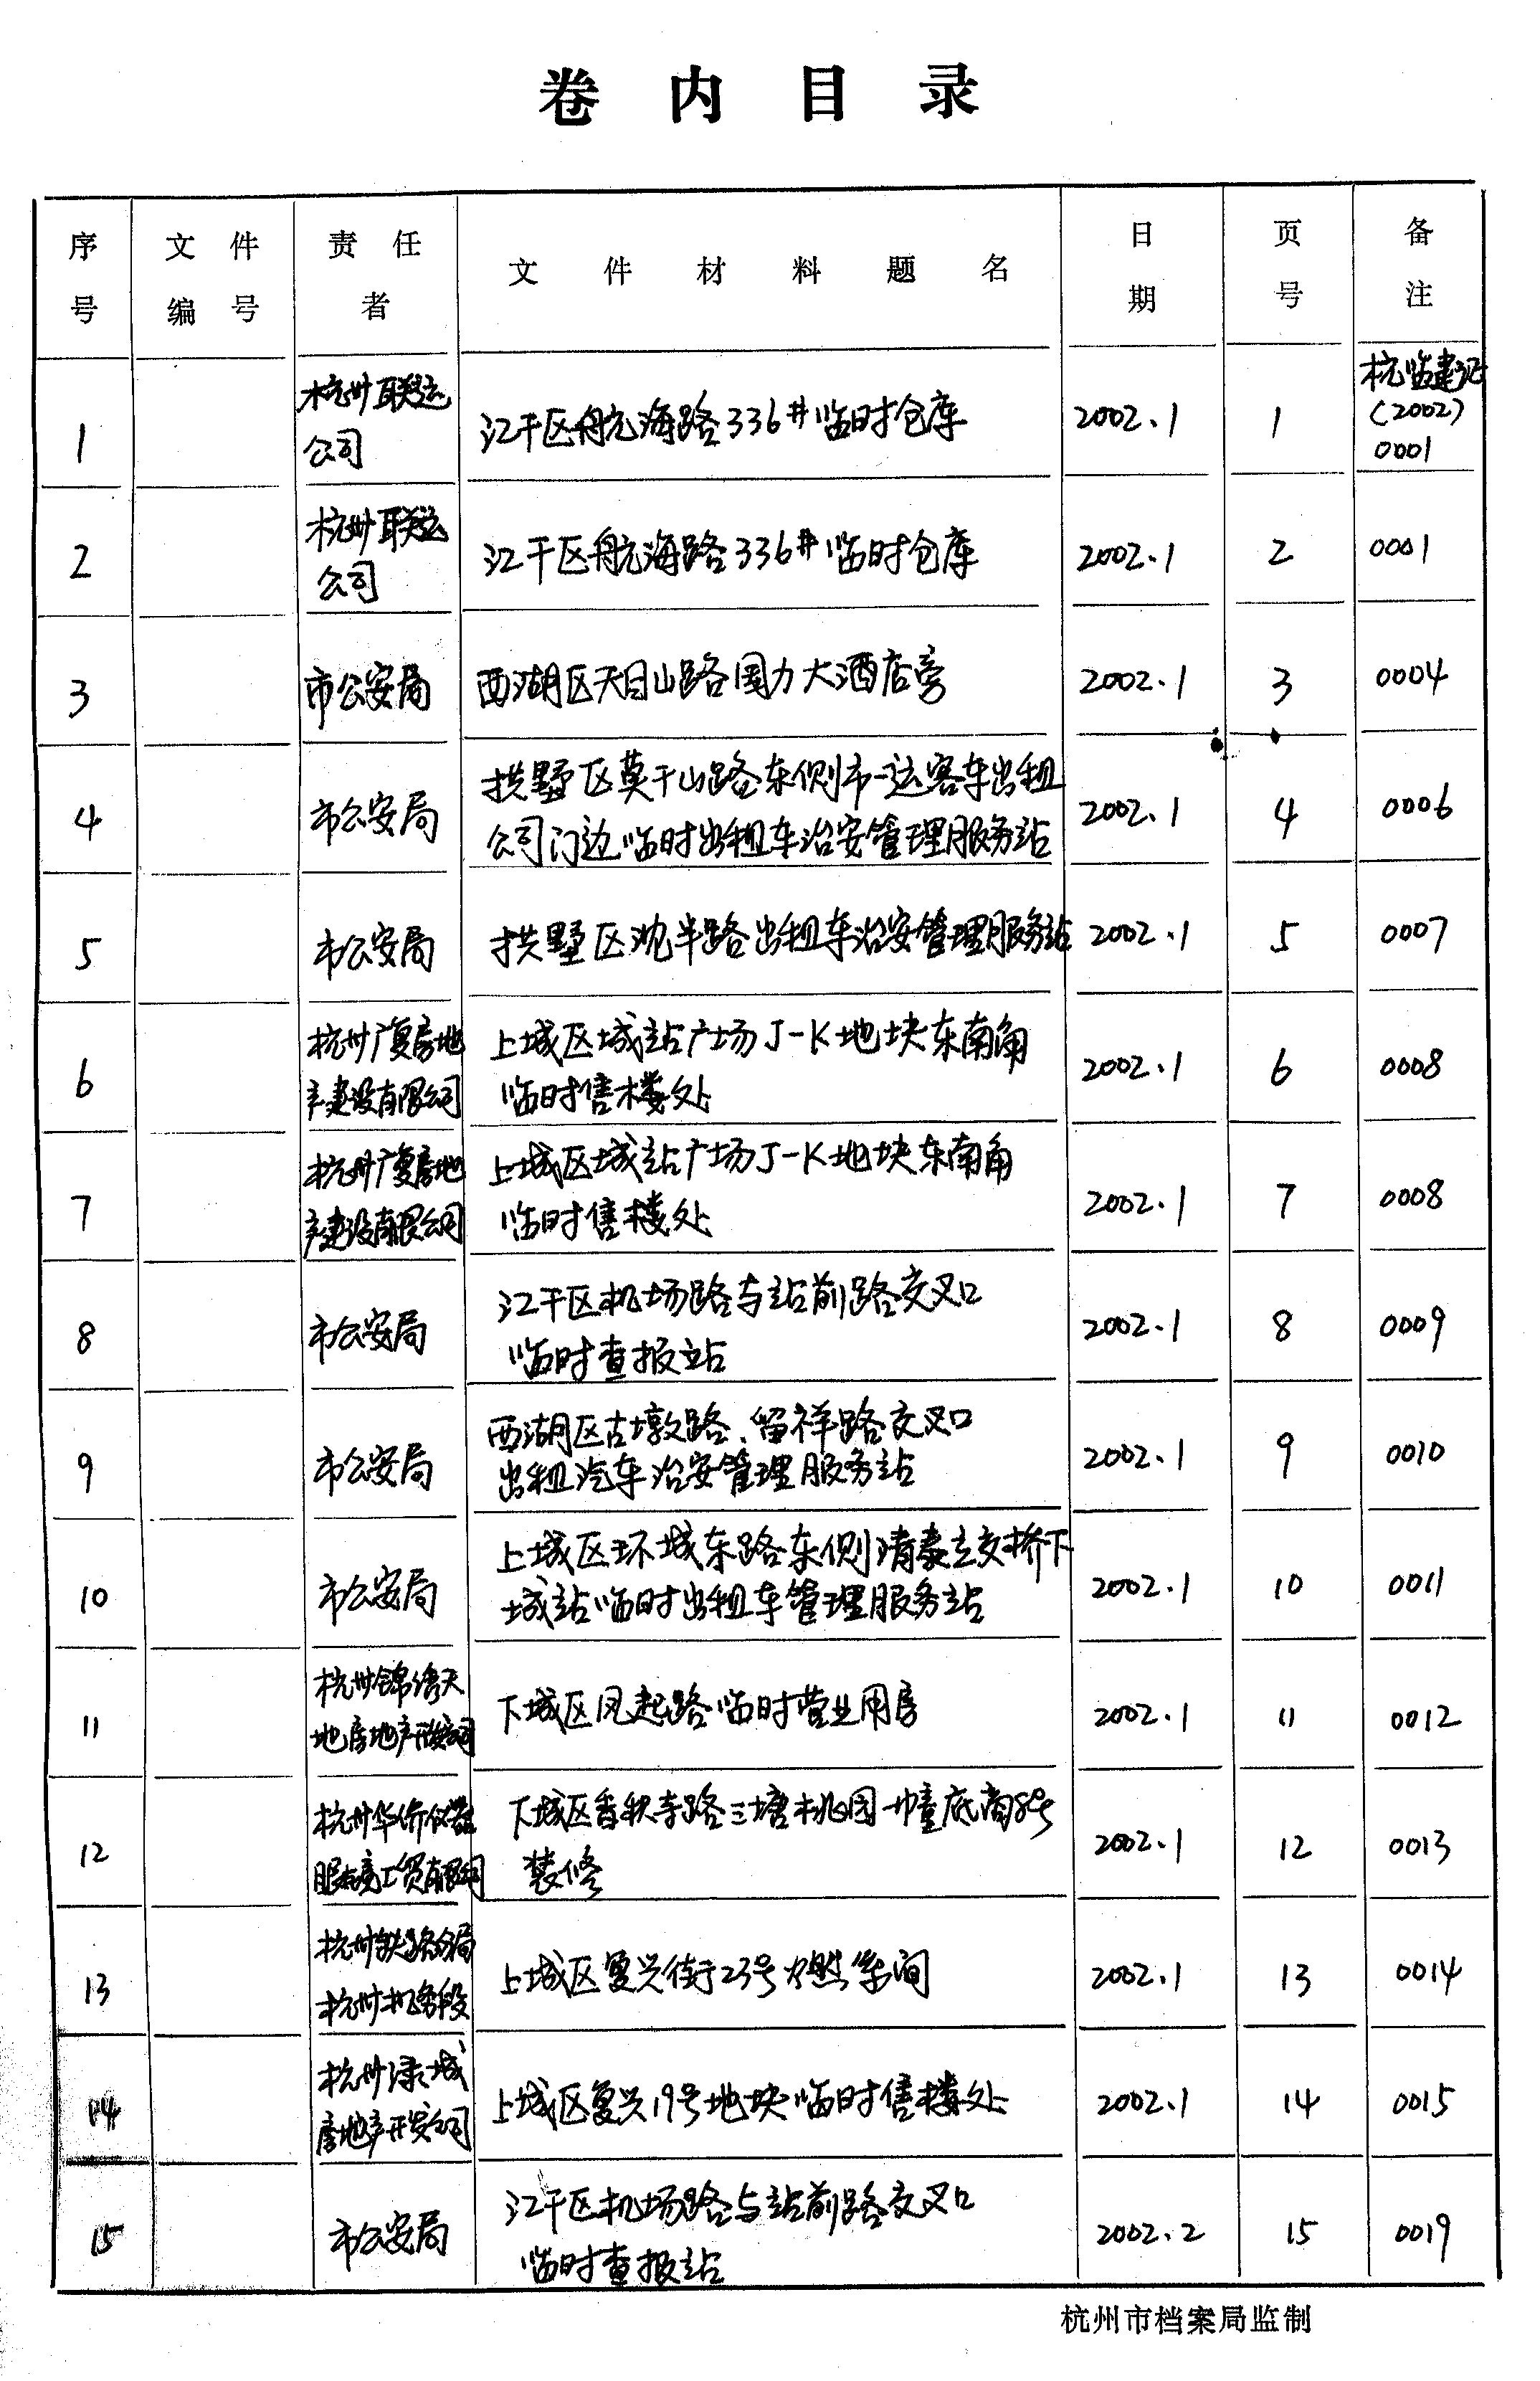 卷内目录
序号 文件编号 责任者 文件材料题名 日期 页号 备注
1 杭州联运公司 江干区航海路336#临时仓库 2002.1 1 杭临建证(2002)0001
2 杭州联运公司 江干区航海路336#临时仓库 2002.1 2 0001
3 市公安局 西湖区天目山路国力大酒店旁 2002.1 3 0004
4 市公安局 拱墅区莫干山路东侧市一运客车出租
公司门边临时出租车治安管理服务站 2002.1 4 0006
5 市公安局 拱墅区沈半路出租车治安管理服务站 2002.1 5 0007
6 杭州广复房地产建设有限公司 上城区城站广场J-K地块东南角
临时售楼处 2002.1 6 0008
7 杭州广复房地产建设有限公司 上城区城站广场J-K地块东南角
临时售楼处 2002.1 7 0008
8 市公安局 江干区机场路与站前路交叉口
临时查报站 2002.1 8 0009
9 市公安局 西湖区古墩路、留祥路交叉口
出租汽车治安管理服务站 2002.1 9 0010
10 市公安局 上城区环城东路东侧清泰立交桥下
城站临时出租车管理服务站 2002.1 10 0011
11 杭州锦绣天地房地产开发公司 下城区凤起路临时营业用房 2002.1 11 0012
12 杭州华侨仪器工贸有限公司 下城区香积寺路三塘桃园一幢底商8号
装修 2002.1 12 0013
13 杭州铁路分局杭州机务段 上城区复兴街23号燃气间 2002.1 13 0014
14 杭州绿城房地产开发公司 上城区复兴19号地块临时售楼处 2002.1 14 0015
15 市公安局 江干区机场路与站前路交叉口
临时查报站 2002.2 15 0019
杭州市档案局监制